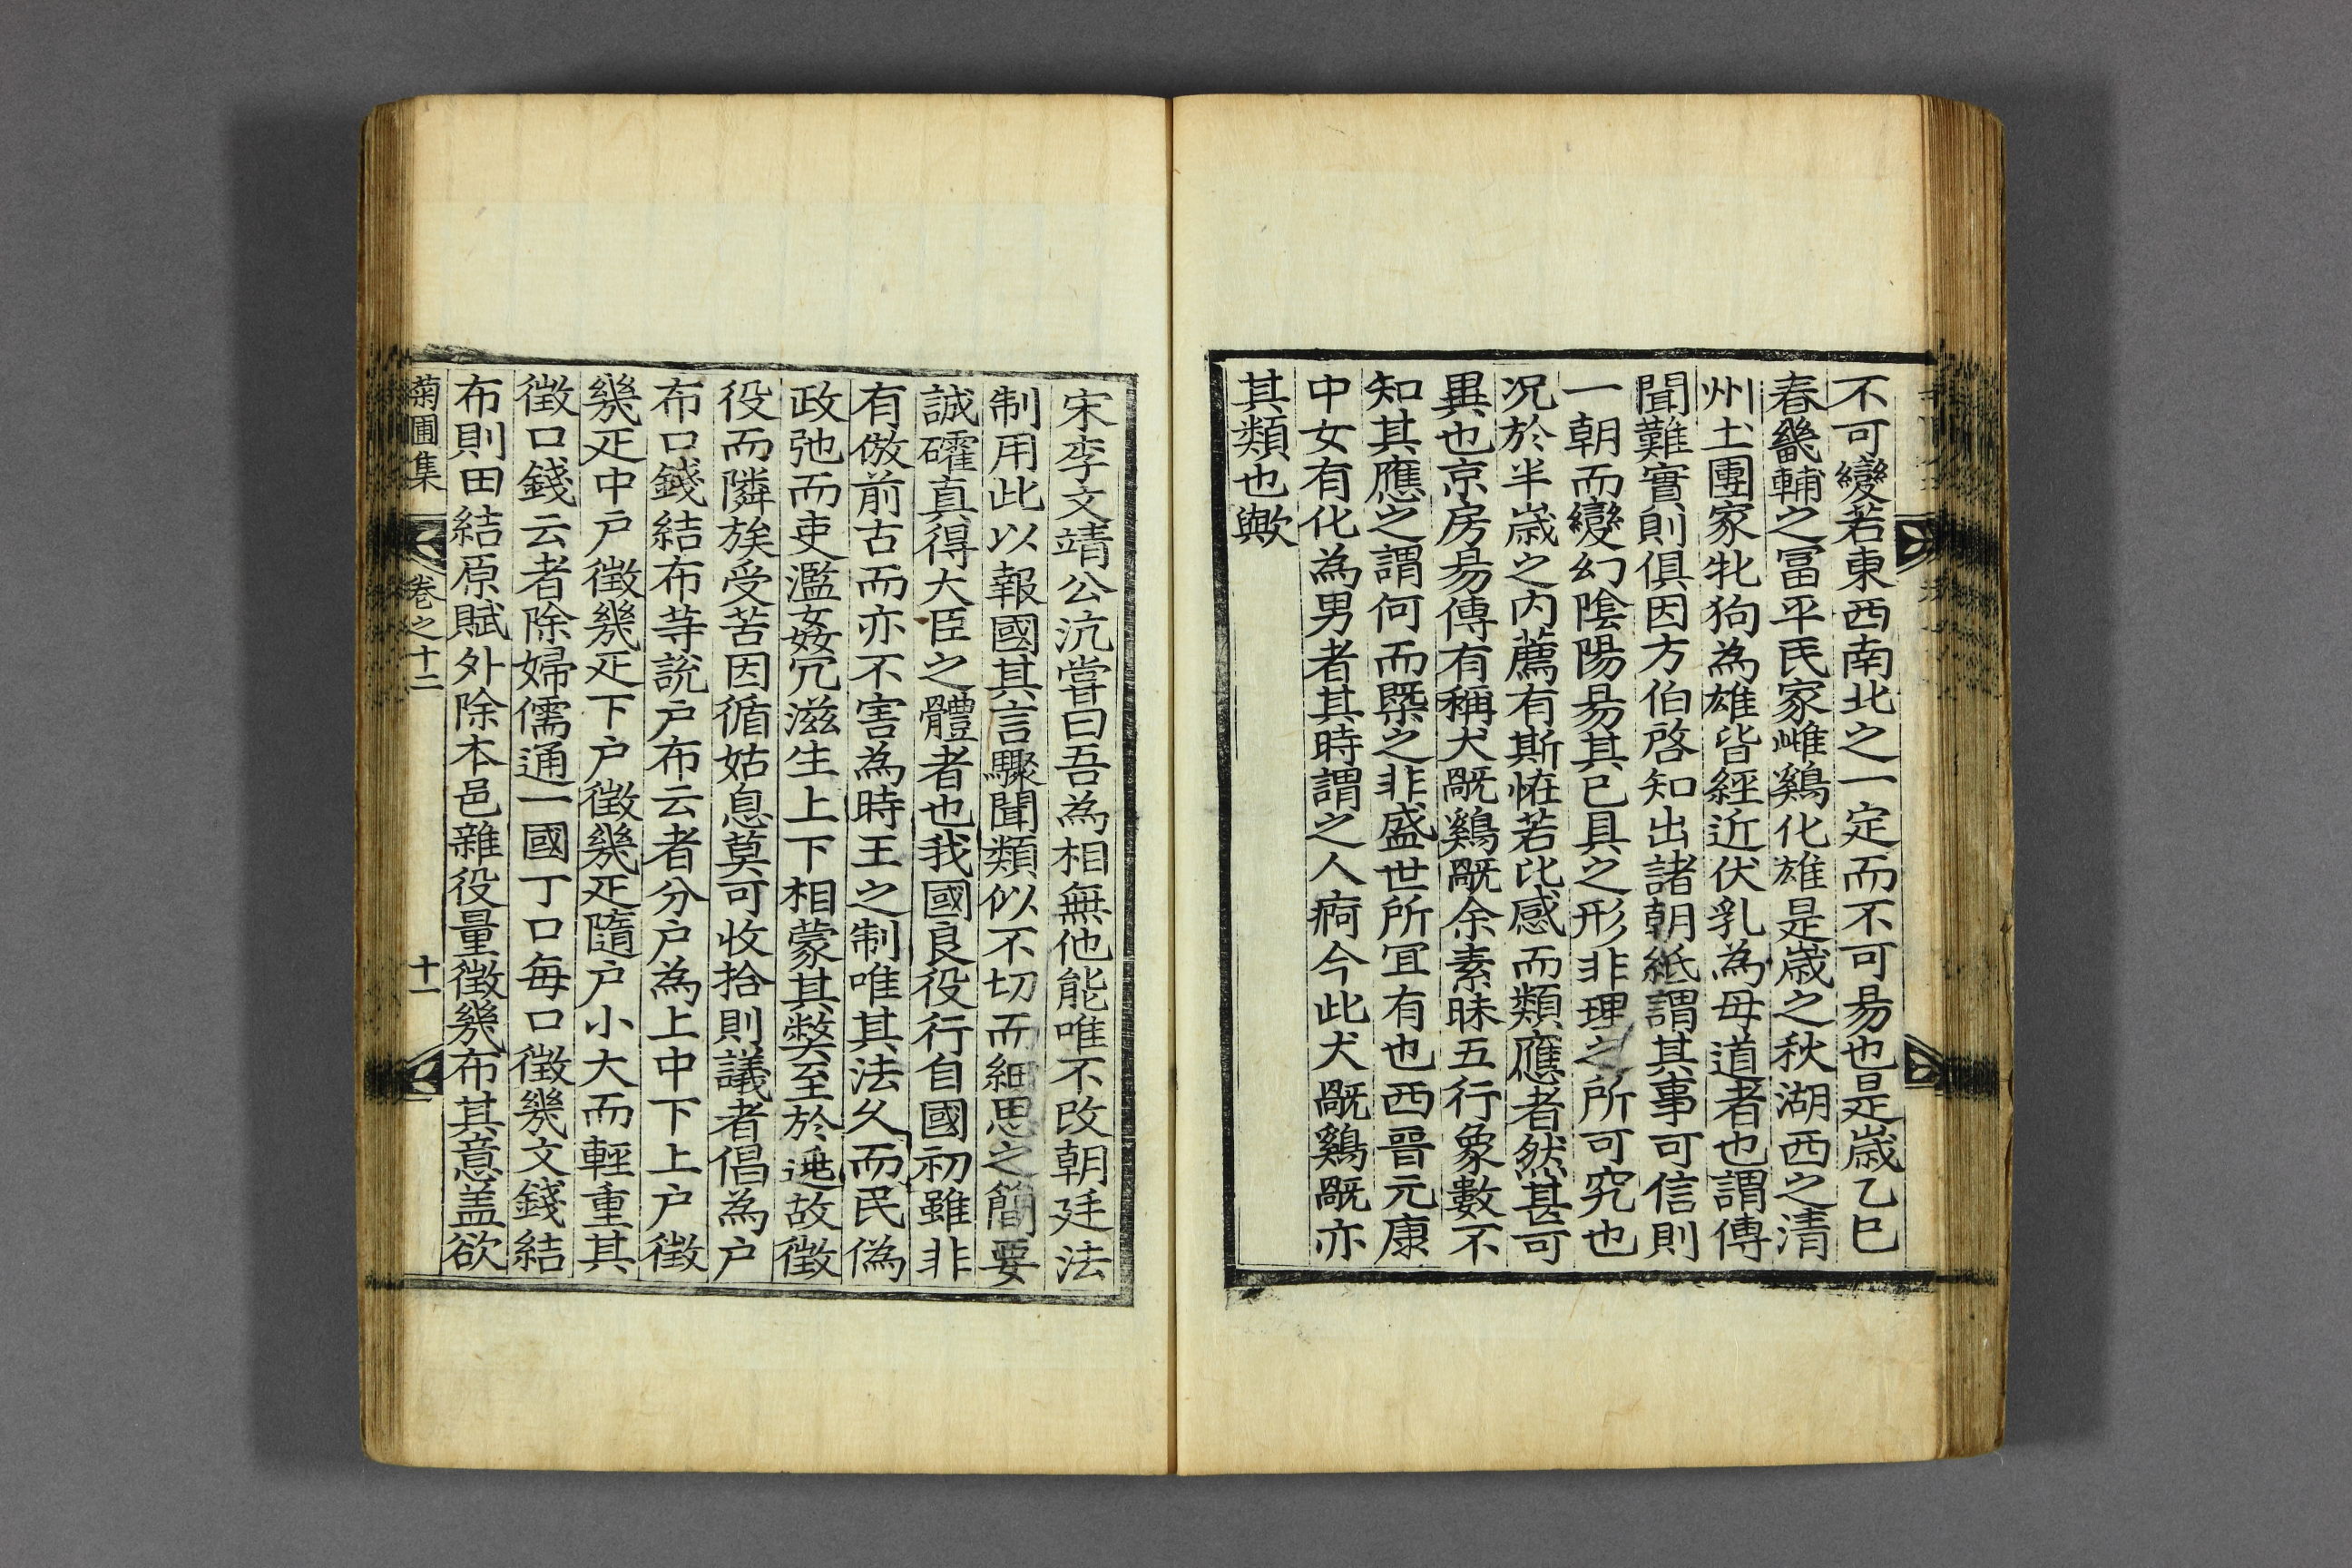 不可變若東西南北之一定而不可易也是歲乙巳
春畿輔之冨平民家雌鷄化雄是歲之秋湖西之清
州土團家牝狗為雄皆經近伏乳為母道者也謂傳
聞難實則俱因方伯啓知出諸朝紙謂其事可信則
一朝而變幻陰陽易其已具之形非理之所可究也
况於半歲之内薦有斯恠若比感而類應者然甚可
異也京房易傳有稱犬旤鷄旤余素昧五行象數不
知其應之謂何而槩之非盛世所冝有也西晋元康
中女有化為男者其時謂之人痾今此犬旤鷄旤亦
其類也歟
宋李文靖公沆嘗曰吾為相無他能唯不改朝廷法
制用此以報國其言驟聞類似不切而細思之簡要
誠確真得大臣之體者也我國良役行自國初雖非
有倣前古而亦不害為時王之制唯其法久而民偽
政弛而吏濫姦冗滋生上下相蒙其弊至於逃故徵
役而隣族受苦因循姑息莫可收拾則議者倡為户
布口錢結布等説户布云者分户為上中下上户徵
幾疋中户徵幾疋下户徵幾疋隨户小大而輕重其
徵口錢云者除婦儒通一國丁口每口徵幾文錢結
布則田結原賦外除本邑雜役量徵幾布其意盖欲
菊圃集 卷之十二 十一